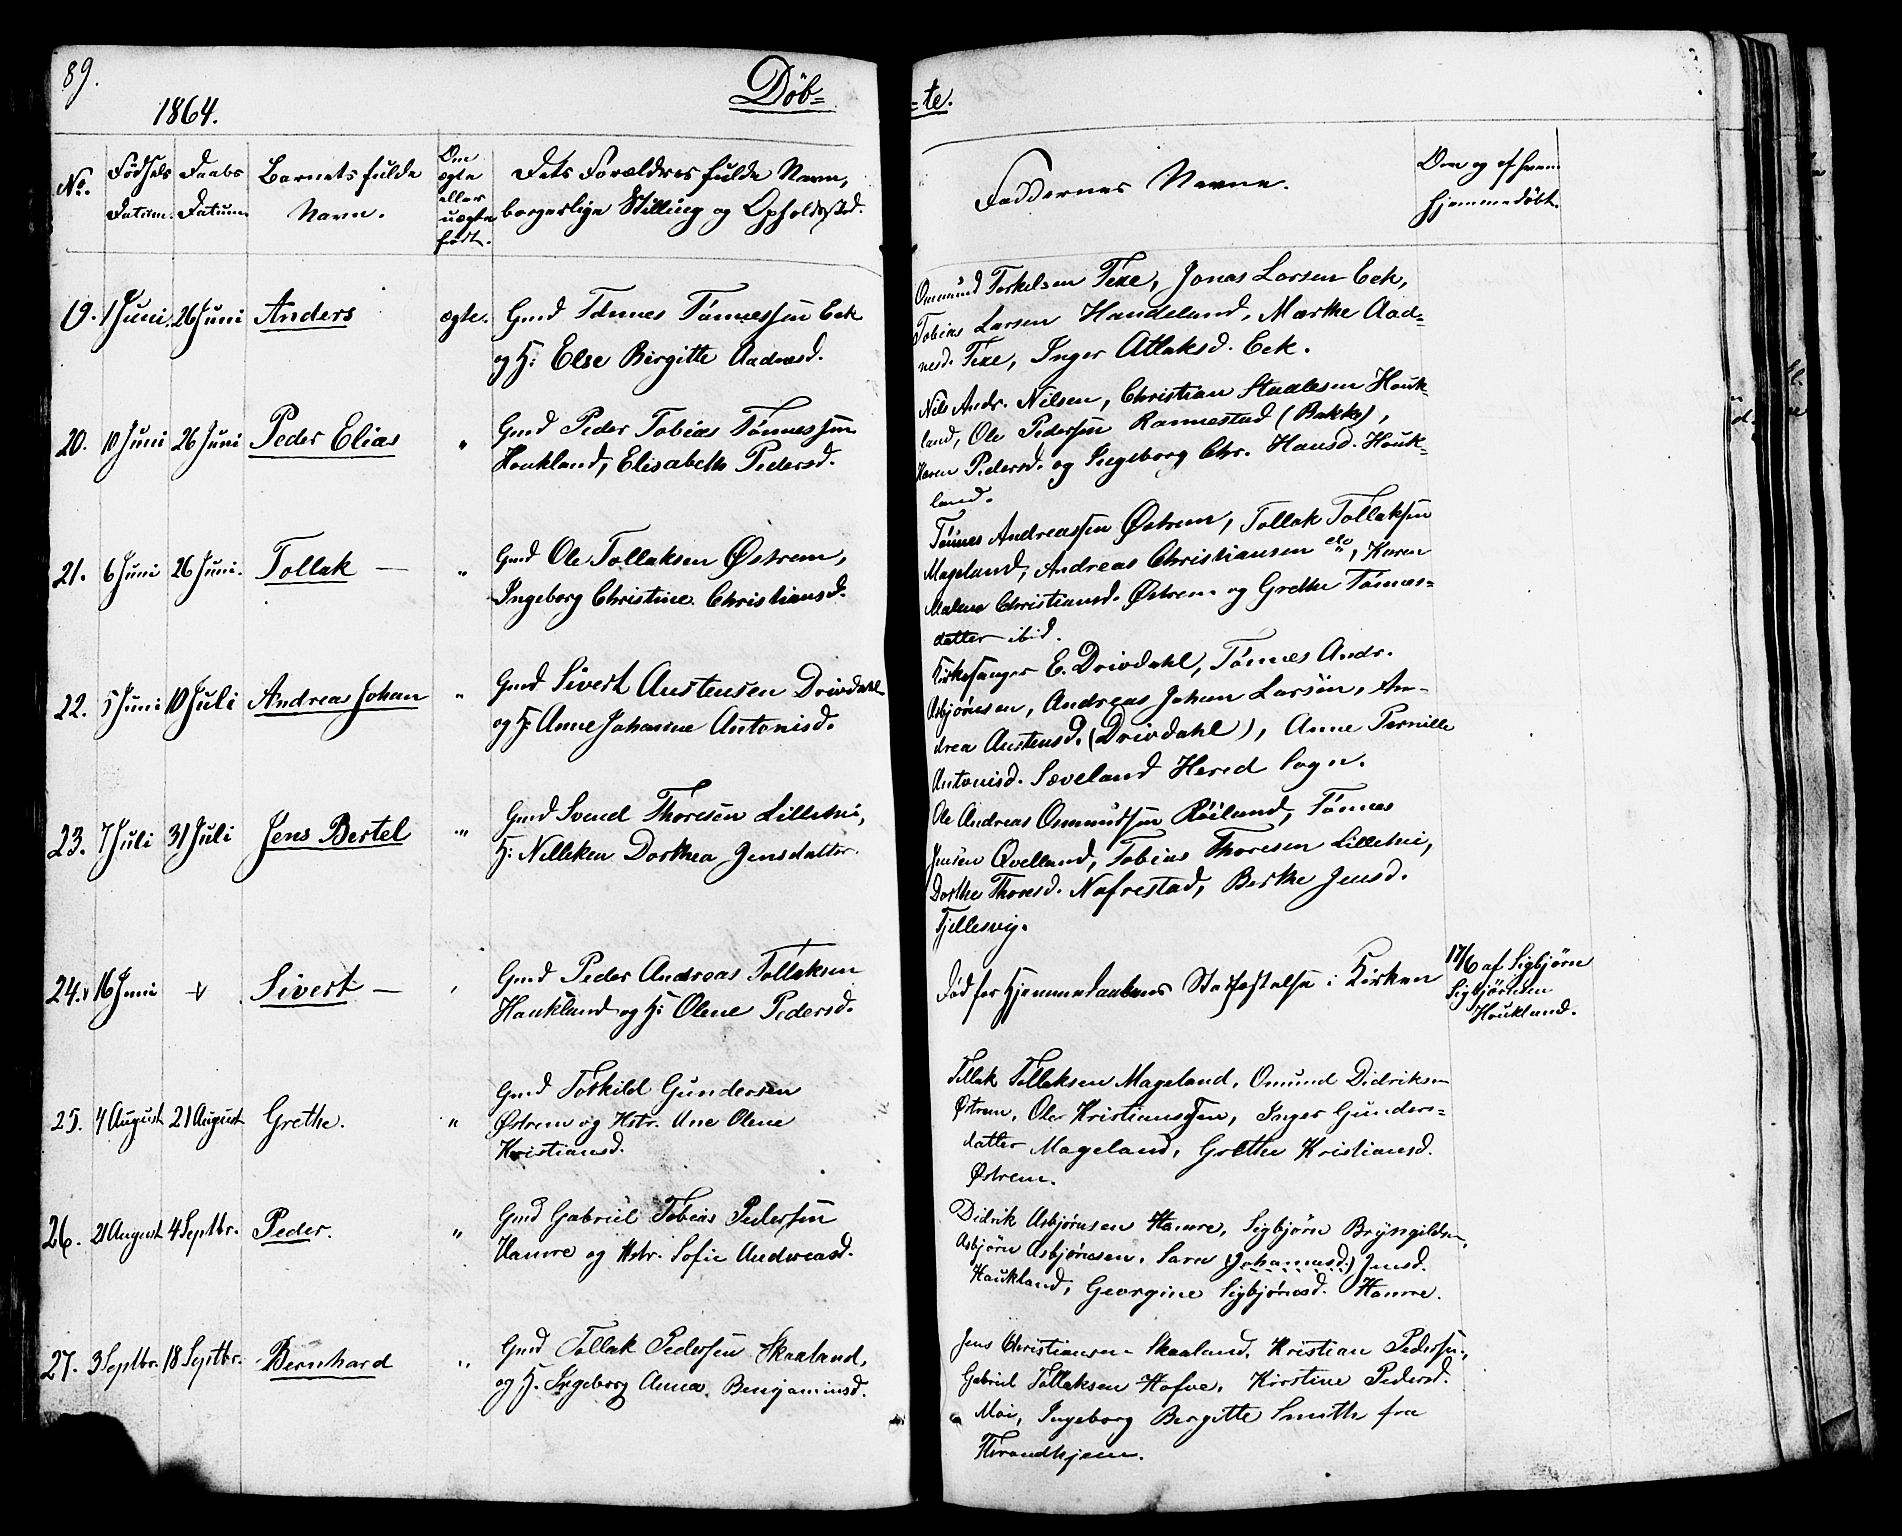 89.
1864.
Döb=
=te.
No.
Födsels Datum.
Daabs Datum
Barnets fulde Navn.
Om ægte eller uægte födt.
Dets Forældres fulde Navn,
borgerlige Stilling og Opholdssted.
Faddernes Navne.
Om og af hvem
hjemmedöbt.
19. 1 Juni 26 Juni Anders ægte. Gmd Tönnes Tönnessen Eek
og H: Else Birgitte Aadnesd.
Ommund Torkelsen Texe, Jonas Larsen Eek,
Tobias Larsen Handeland, Marthe Aad=
nesd. Texe, Inger Atlaksd. Eek.
20. 11 Juni 26 Juni Peder Elias " Gmd Peder Tobias Tönnessen
Houkland, Elisabeth Pedersd.
Nils Andr. Nilsen, Christian Staalesen Houk-
land, Ole Pedersen Rannestad (Bakke),
Karen Pedersd. og Ingeborg Chr. Hansd. Houk-
land.
21. 6 Juni 26 Juni. Tollak — " Gmd Ole Tollaksen Østrem,
Ingeborg Christine Christiansd.
Tönnes Andreassen Østrem, Tollak Tollaksen
Mageland, Andreas Christiansen do, Karen
Malene Christiansd. Østrem og Grethe Tönnes=
datter ibid.
22. 5 Juni 10 Juli Andreas Johan " Gmd Sivert Austensen Drivdahl
og H: Anne Johanne Antonisd.
Kirkesanger E. Drivdahl, Tönnes Andr.
Asbjörnsen, Andreas Johan Larsen, An-
drea Austensd. (Drivdahl), Anne Pernille
Antonisd. Sæveland Hered Sogn.
23. 7 Juli 31 Juli Jens Bertel " Gmd Svend Thoresen Lillehei,
H: Nilleken Dorthea Jensdatter.
Ole Andreas Ommundsen Röiland, Tönnes
Jensen Qvelland, Tobias Thoresen Lillehei,
Dorthe Thoresd. Nafrestad, Berthe Jensd.
Fjellesvig.
24. 16 Juni Sivert — Gmd Peder Andreas Tollaksen
Haukland og H: Olene Pedersd.
Död för Hjemmedaabens Stadfæstelse i Kirken
17/6 af Sigbjörn
Sigbjörnsen
Houkland.
25. 4 August 21 August Grethe. " Gmd Torkild Gundersen
Østrem og Hstr. Ane Olene
Kristiansd.
Tollak Tollaksen Mageland, Omund Didriksen
Østrem, Ole Kristianssen, Inger Gunders=
datter Mageland, Grethe Kristiansd.
Østrem.
26. 21 August 4 Septbr. Peder. " Gmd Gabriel Tobias Pedersen
Hamre og Hstr. Sofie Andreasd.
Didrik Asbjörnsen Hamre, Sigbjörn Bryngildsen,
Asbjörn Asbjörnsen, Sara (Johannesd.) Jensd.
Haukland, Georgine Sigbjörnsd. Hamre.
27. 3 Septbr. 18 Septbr. Bernhard " Gmd Tollak Pedersen Skaaland,
og H. Ingeborg Anna Benjaminsd.
Jens Christiansen Skaaland, Kristian Pedersen,
Gabriel Tollaksen Hofve, Kirstine Pedersd.
Moi, Ingeborg Bergitte Smith fra
Thrandhjem.